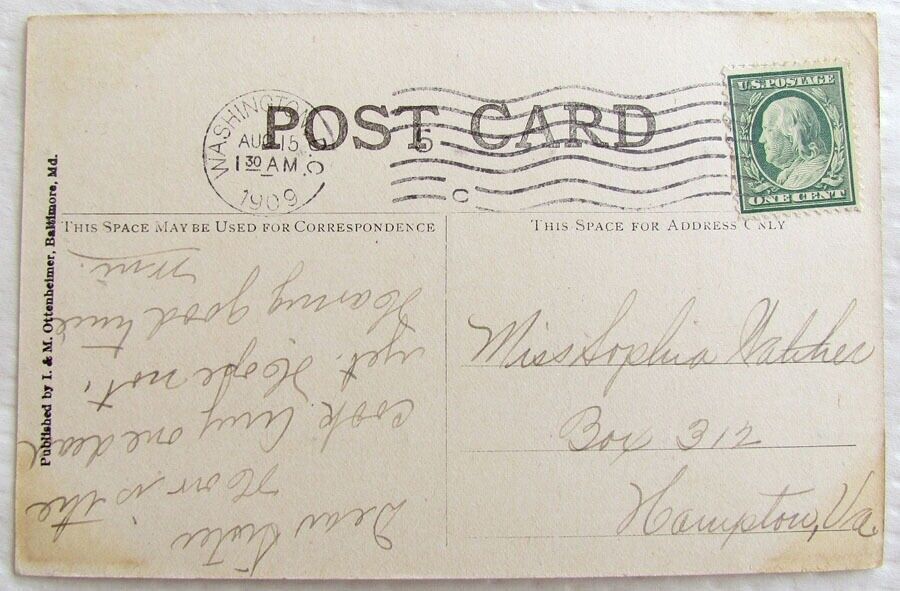 POST CARD
WASHINGTON, D.C.
AUG 15
1 30 AM
1909
5
C
U.S. POSTAGE
ONE CENT
THIS SPACE MAY BE USED FOR CORRESPONDENCE
THIS SPACE FOR ADDRESS ONLY
Published by I. & M. Ottenheimer, Baltimore, Md.
Dear Sister
How is the
cook. Any one dead
yet. Hope not.
Having good time
Miss Sophia Hatcher
Box 312
Hampton, Va.